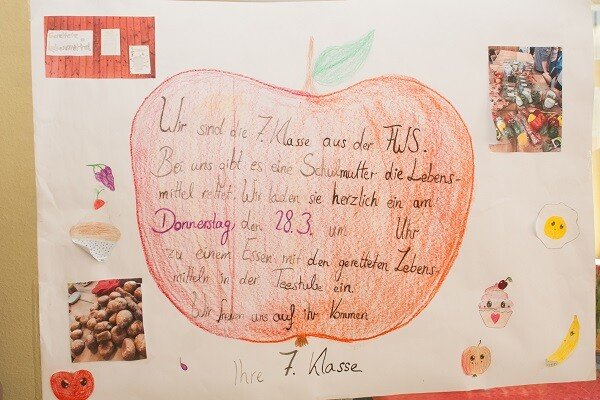 Gerettete
Lebensmittel
Wir sind die 7. Klasse aus der FWS.
Bei uns gibt es eine Schulmutter die Lebens-
mittel rettet. Wir laden sie herzlich ein am
Donnerstag, den 28.3. um Uhr
zu einem Essen mit den geretteten Lebens-
mitteln in der Teestube ein.
Wir freuen uns auf ihr Kommen.
Ihre 7. Klasse